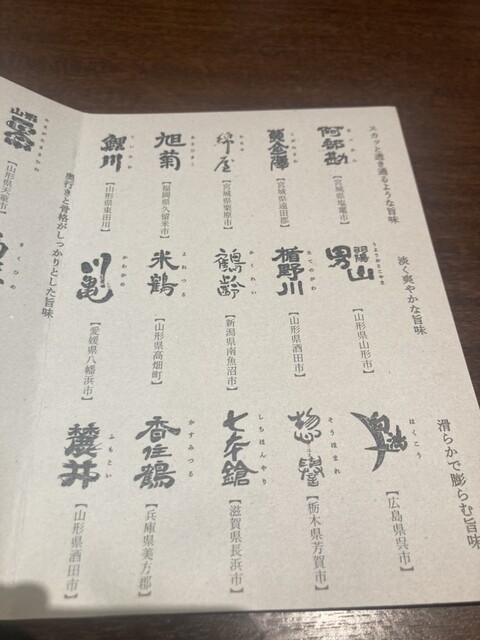 スカッと透き通るような旨味
あべかん
阿部勘
【宮城県塩竈市】
黄金澤
【宮城県遠田郡】
綿屋
【宮城県栗原市】
旭菊
【福岡県久留米市】
こいかわ
鯉川
【山形県東田川】
淡く爽やかな旨味
うようおとこやま
羽陽男山
【山形県山形市】
たてのがわ
楯野川
【山形県酒田市】
かくれい
鶴齢
【新潟県南魚沼市】
よねつる
米鶴
【山形県高畑町】
川亀
【愛媛県八幡浜市】
滑らかで膨らむ旨味
はくこう
【広島県呉市】
そうほまれ
惣譽
【栃木県芳賀市】
しちほんやり
七本鎗
【滋賀県長浜市】
かすみつる
香住鶴
【兵庫県美方郡】
ふもとい
麓井
【山形県酒田市】
奥行きと骨格がしっかりとした旨味
【山形県天童市】